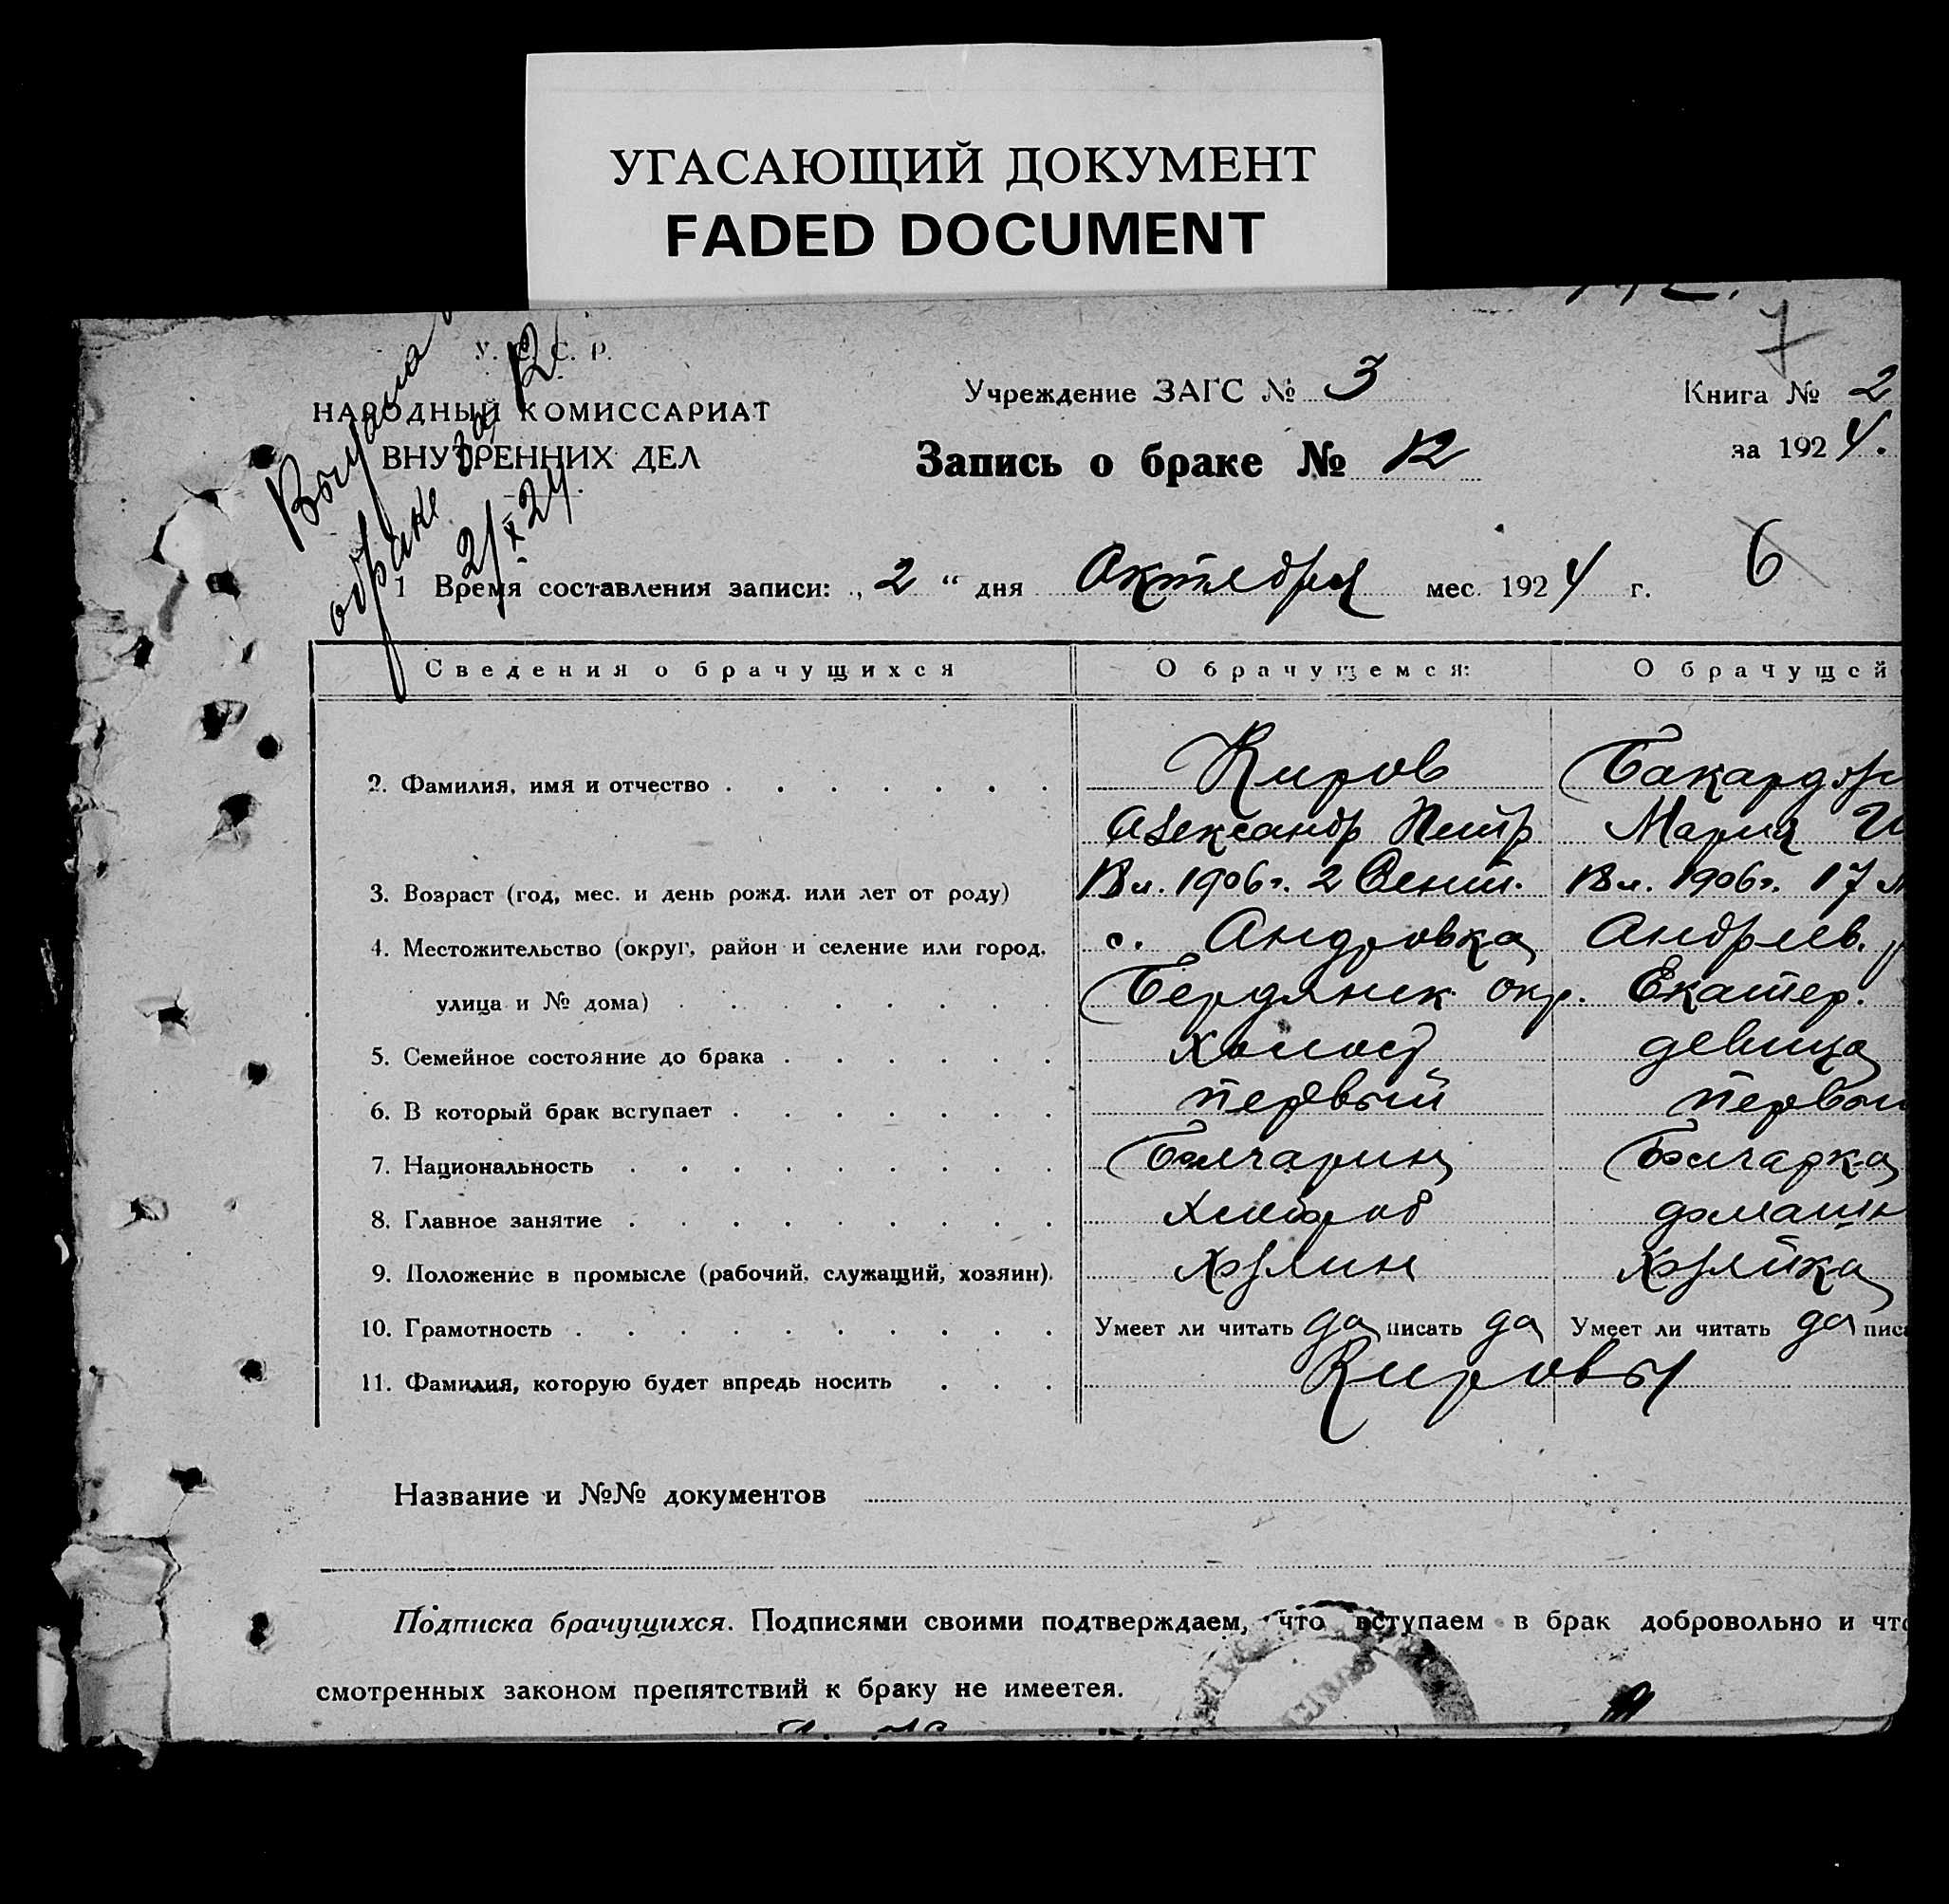 УГАСАЮЩИЙ ДОКУМЕНТ
FADED DOCUMENT
7
У. С. С. Р.
НАРОДНЫЙ КОМИССАРИАТ
ВНУТРЕННИХ ДЕЛ
о браке за № 12
2/X 24
Учреждение ЗАГС № 3
Книга № 2
за 1924.
Запись о браке № 12
6
1 Время составления записи: „2“ дня Октября мес. 1924 г.
Сведения о брачущихся О брачущемся: О брачущей
2. Фамилия, имя и отчество Киров
Александр Петр Мария И
3. Возраст (год, мес. и день рожд. или лет от роду) 18 л. 1906 г. 2 Сент. 18 л. 1906 г. 17 м
4. Местожительство (округ, район и селение или город, с. Андровка Андреев. р
улица и № дома) Бердянск окр. Екатер.
5. Семейное состояние до брака холост девица
6. В который брак вступает первый первый
7. Национальность Болгарин Болгарка
8. Главное занятие хлебороб домашн
9. Положение в промысле (рабочий, служащий, хозяин). хозяин хозяйка
10. Грамотность Умеет ли читать да писать да Умеет ли читать да писа
11. Фамилия, которую будет впредь носить Кировы
Название и №№ документов
Подписка брачущихся. Подписями своими подтверждаем, что вступаем в брак добровольно и что
смотренных законом препятствий к браку не имеется.